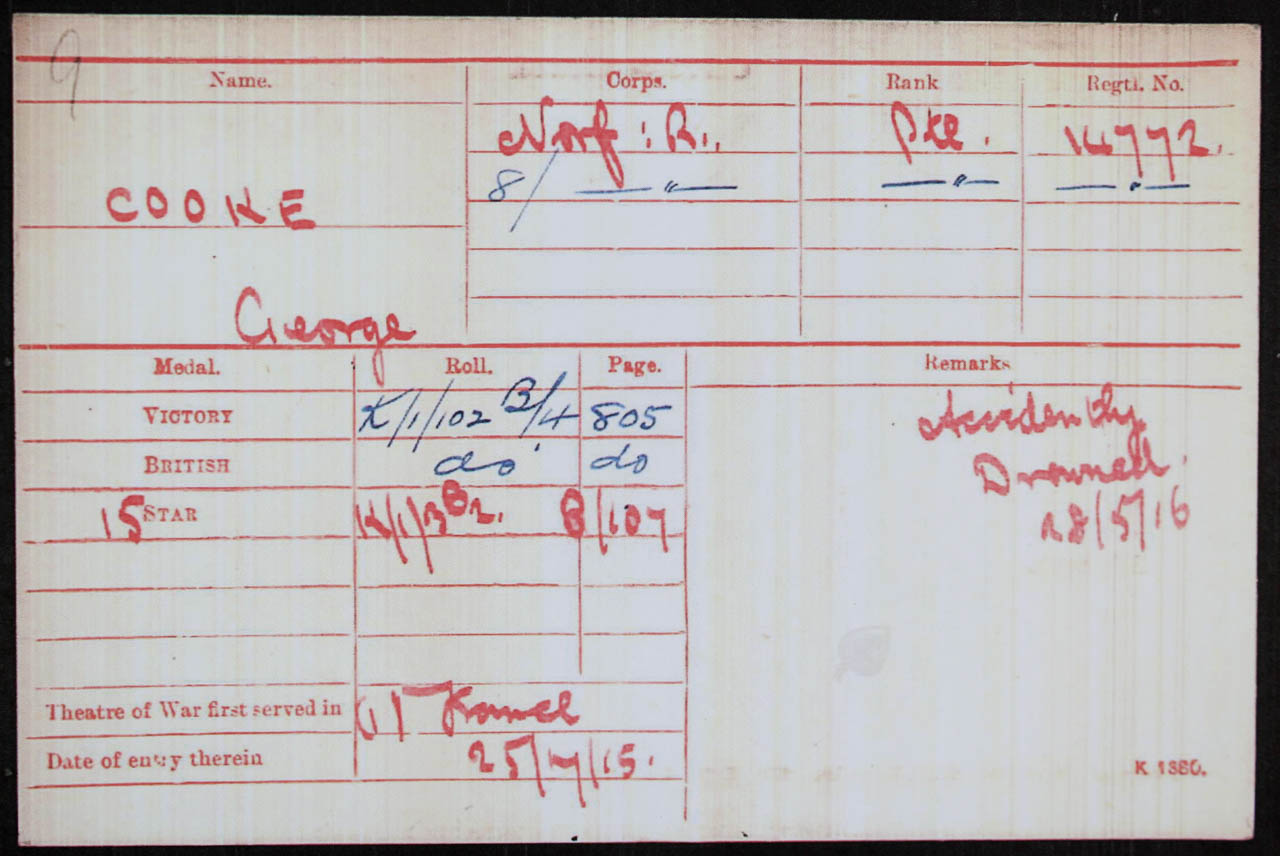 9
Name. Corps. Rank Regtl. No.
Norf: R. Pte. 14772.
8/ — " — — " — — " —
COOKE
George
Medal. Roll. Page. Remarks
VICTORY K/1/102 B/4 805 Accidently
BRITISH do do Drowned.
15 STAR K/1/3 B2. B/107 28/5/16
Theatre of War first served in (1) France
Date of entry therein 25/7/15.
K 1380.